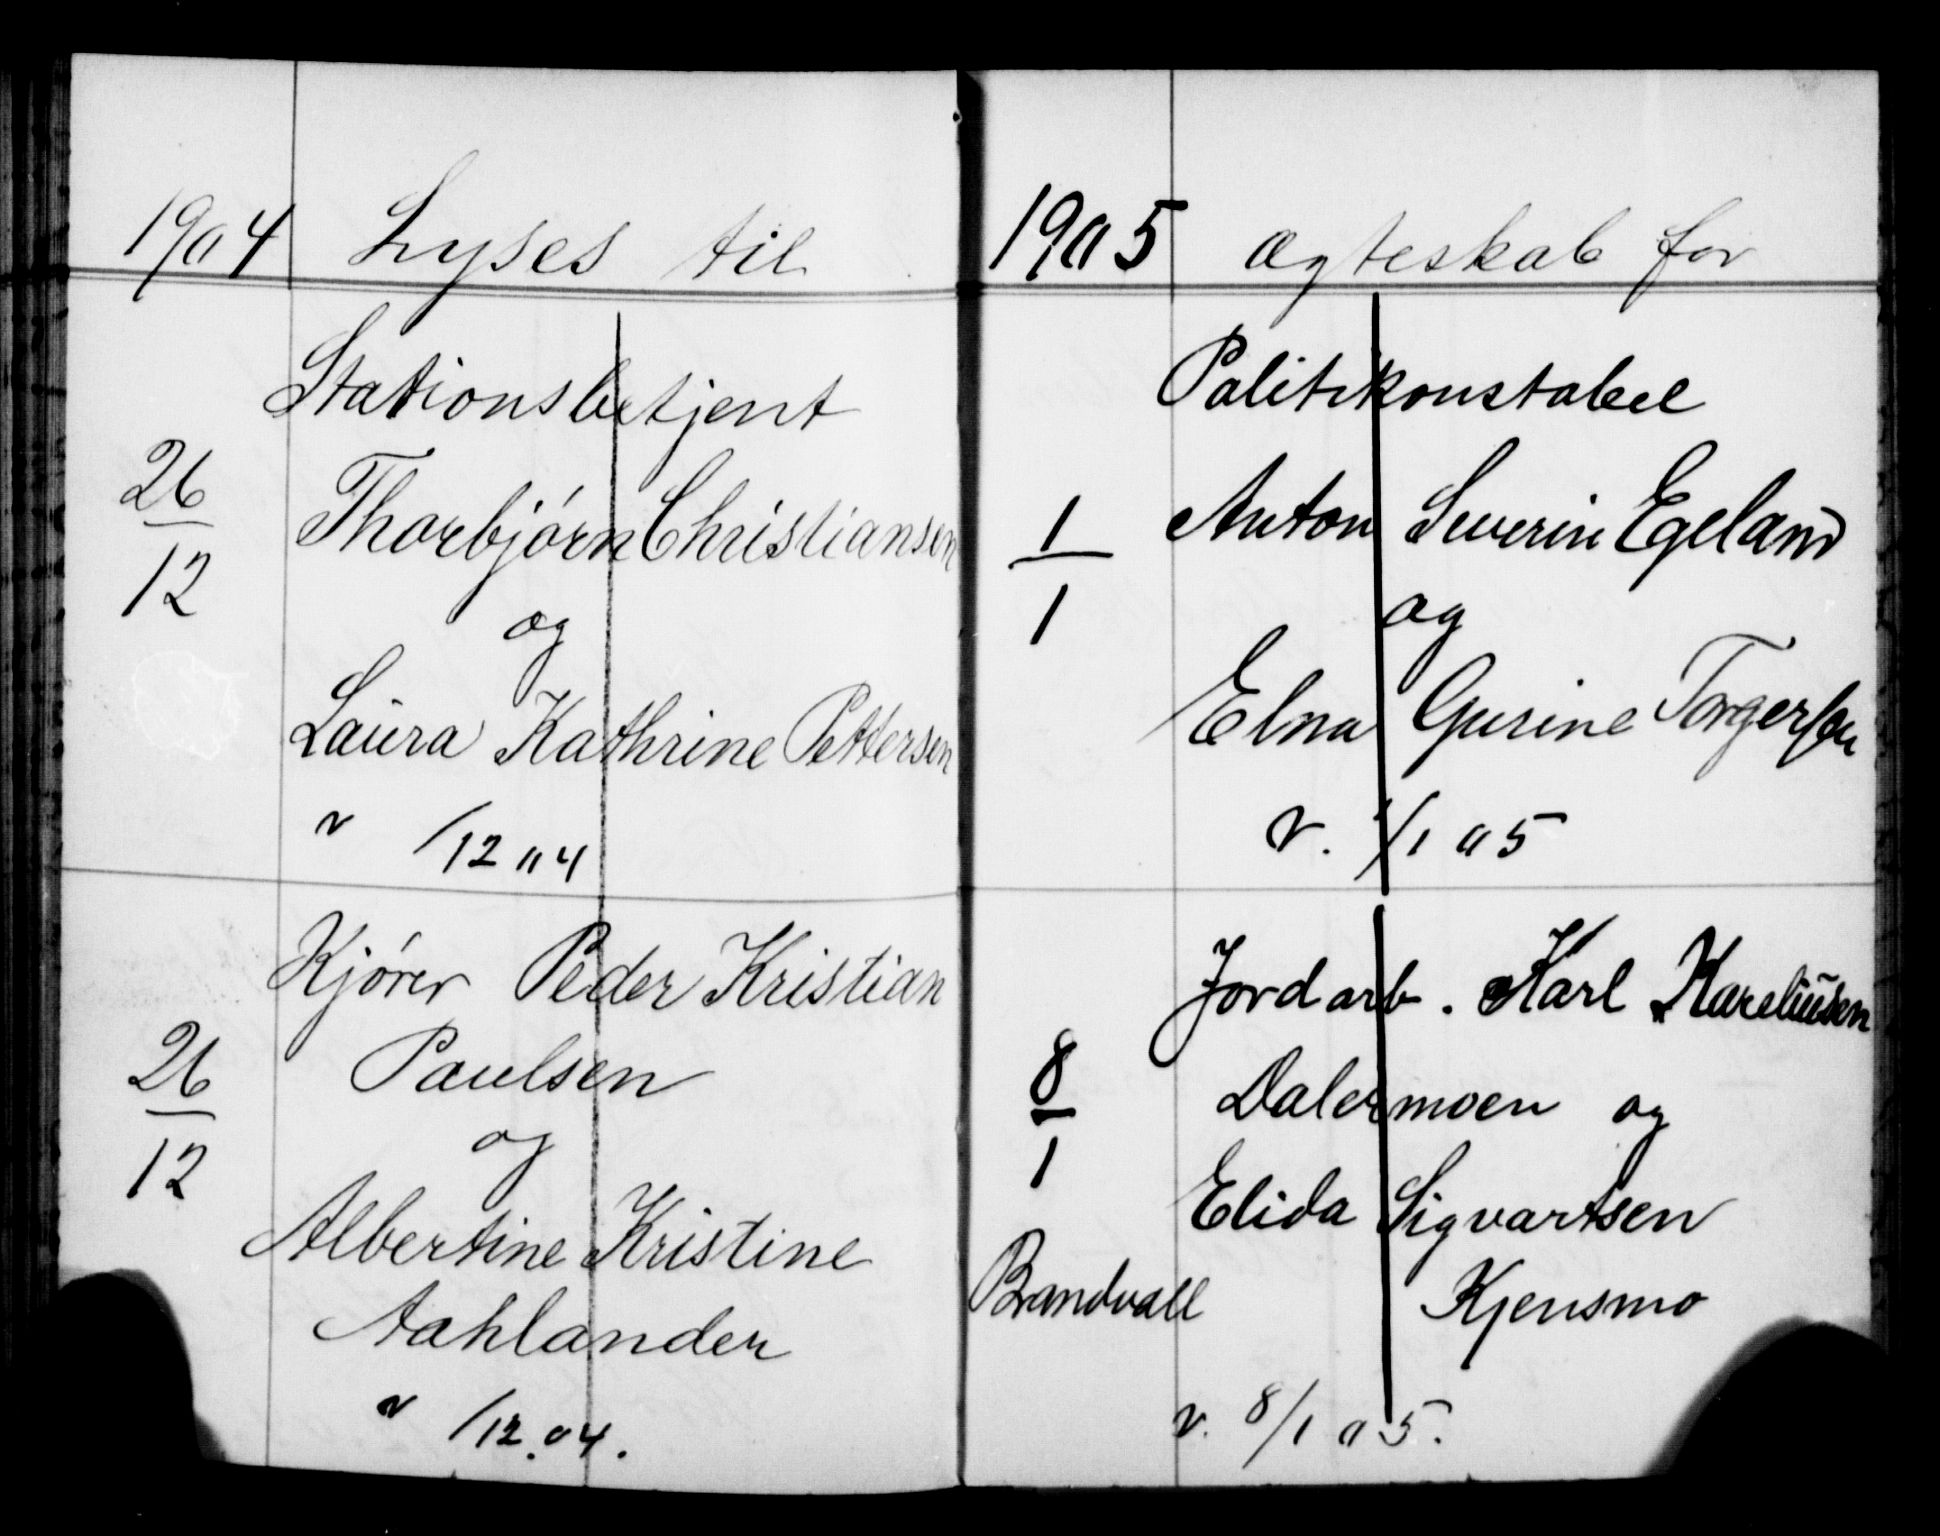 1904 Lyses til
Stationsbetjent
26/12 Thorbjørn Christiansen
og
Laura Kathrine Pettersen
v /12 04
Kjører Peder Kristian
26/12 Paulsen
og
Albertine Kristine
Aahlander
v /12.04.
1905 ægteskab for
Politikonstabel
1/1 Anton Severin Egeland
og
Elna Gurine Torgersen
v. 1/1 05
Jordarb. Karl Kareliusen
8/1 Dalermoen og
Elida Sigvartsen
Brandvall Kjensmo
v. 8/1 05.